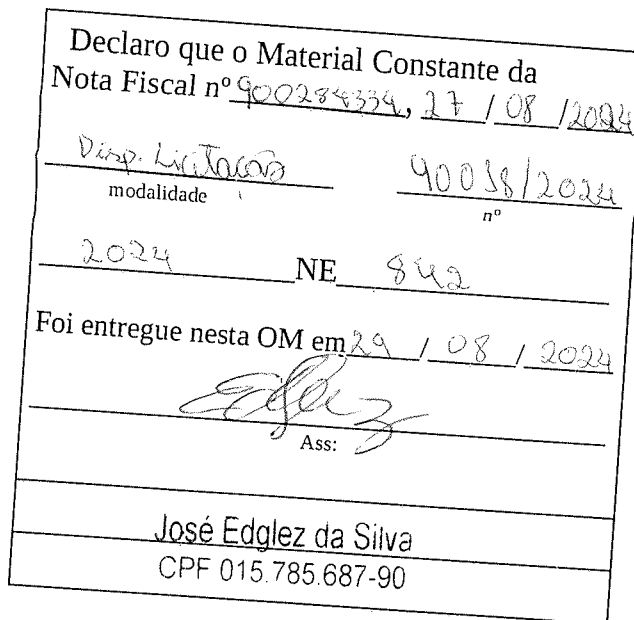 Declaro que o Material Constante da
Nota Fiscal nº 900284334, 27 / 08 / 2024
Disp. Licitação 90038/2024
modalidade nº
2024 NE 842
Foi entregue nesta OM em 29 / 08 / 2024
Ass:
José Edglez da Silva
CPF 015.785.687-90